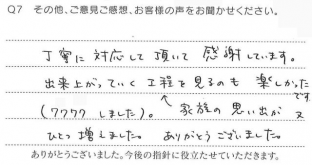 Q7 その他、ご意見ご感想、お客様の声をお聞かせください。
丁寧に対応して頂いて感謝しています。
出来上がっていく工程を見るのも楽しかったです
(ワクワクしました)。家族の思い出が又
ひとつ増えました。ありがとうございました。
ありがとうございました。今後の指針に役立たせていただきます。